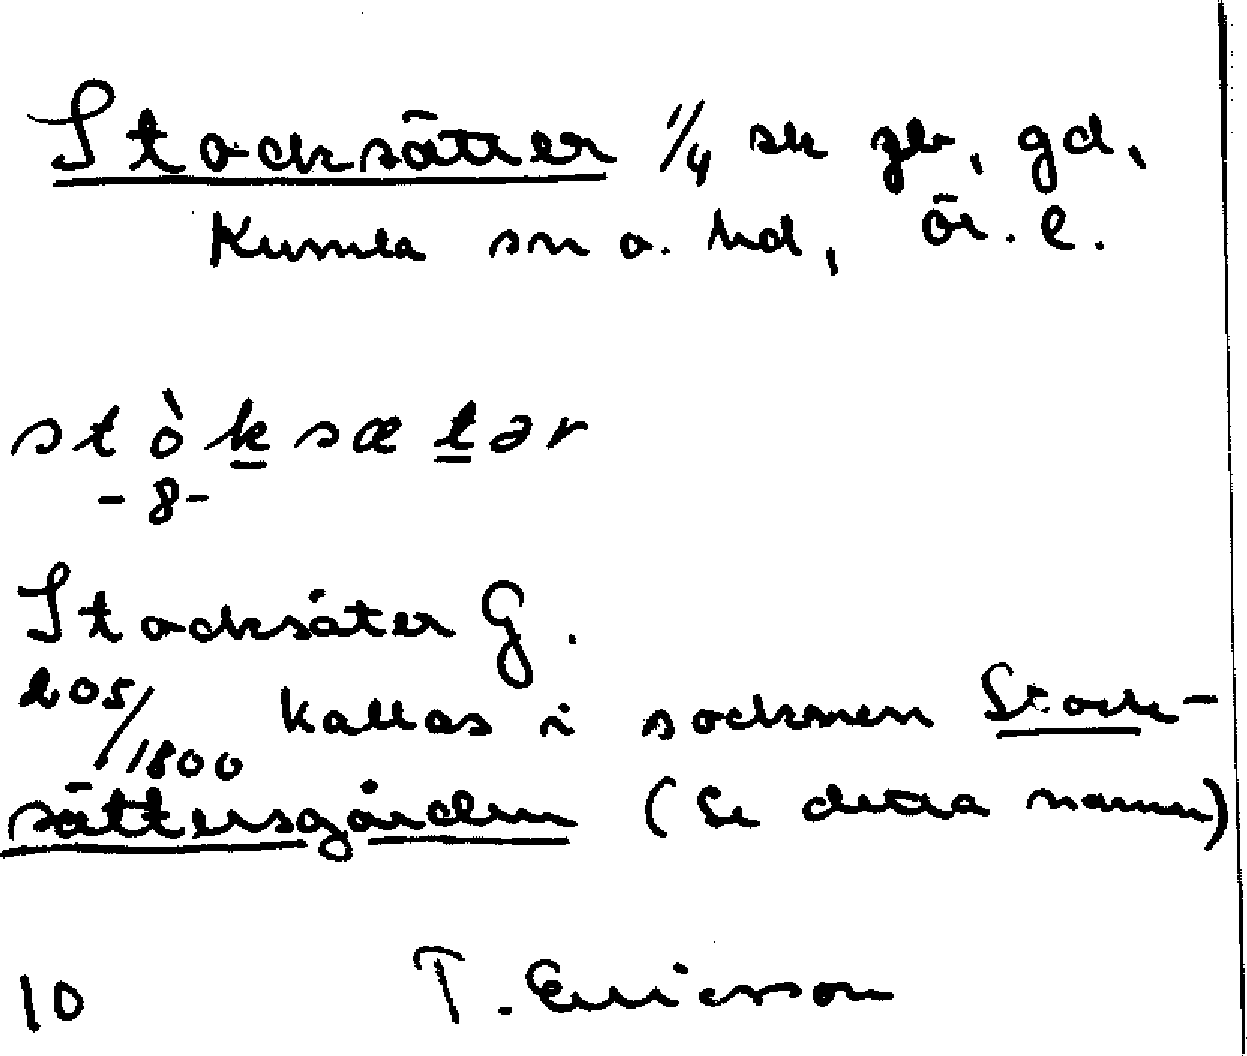 Stocksätter 1/4 sk gb, gd,
Kumla sn o. hd, Ör. l.
stòksætər
- 8 -
Stocksäter G.
205/1800 kallas i socknen Stock-
sättersgården (Se detta namn)
10 T. Ericsson